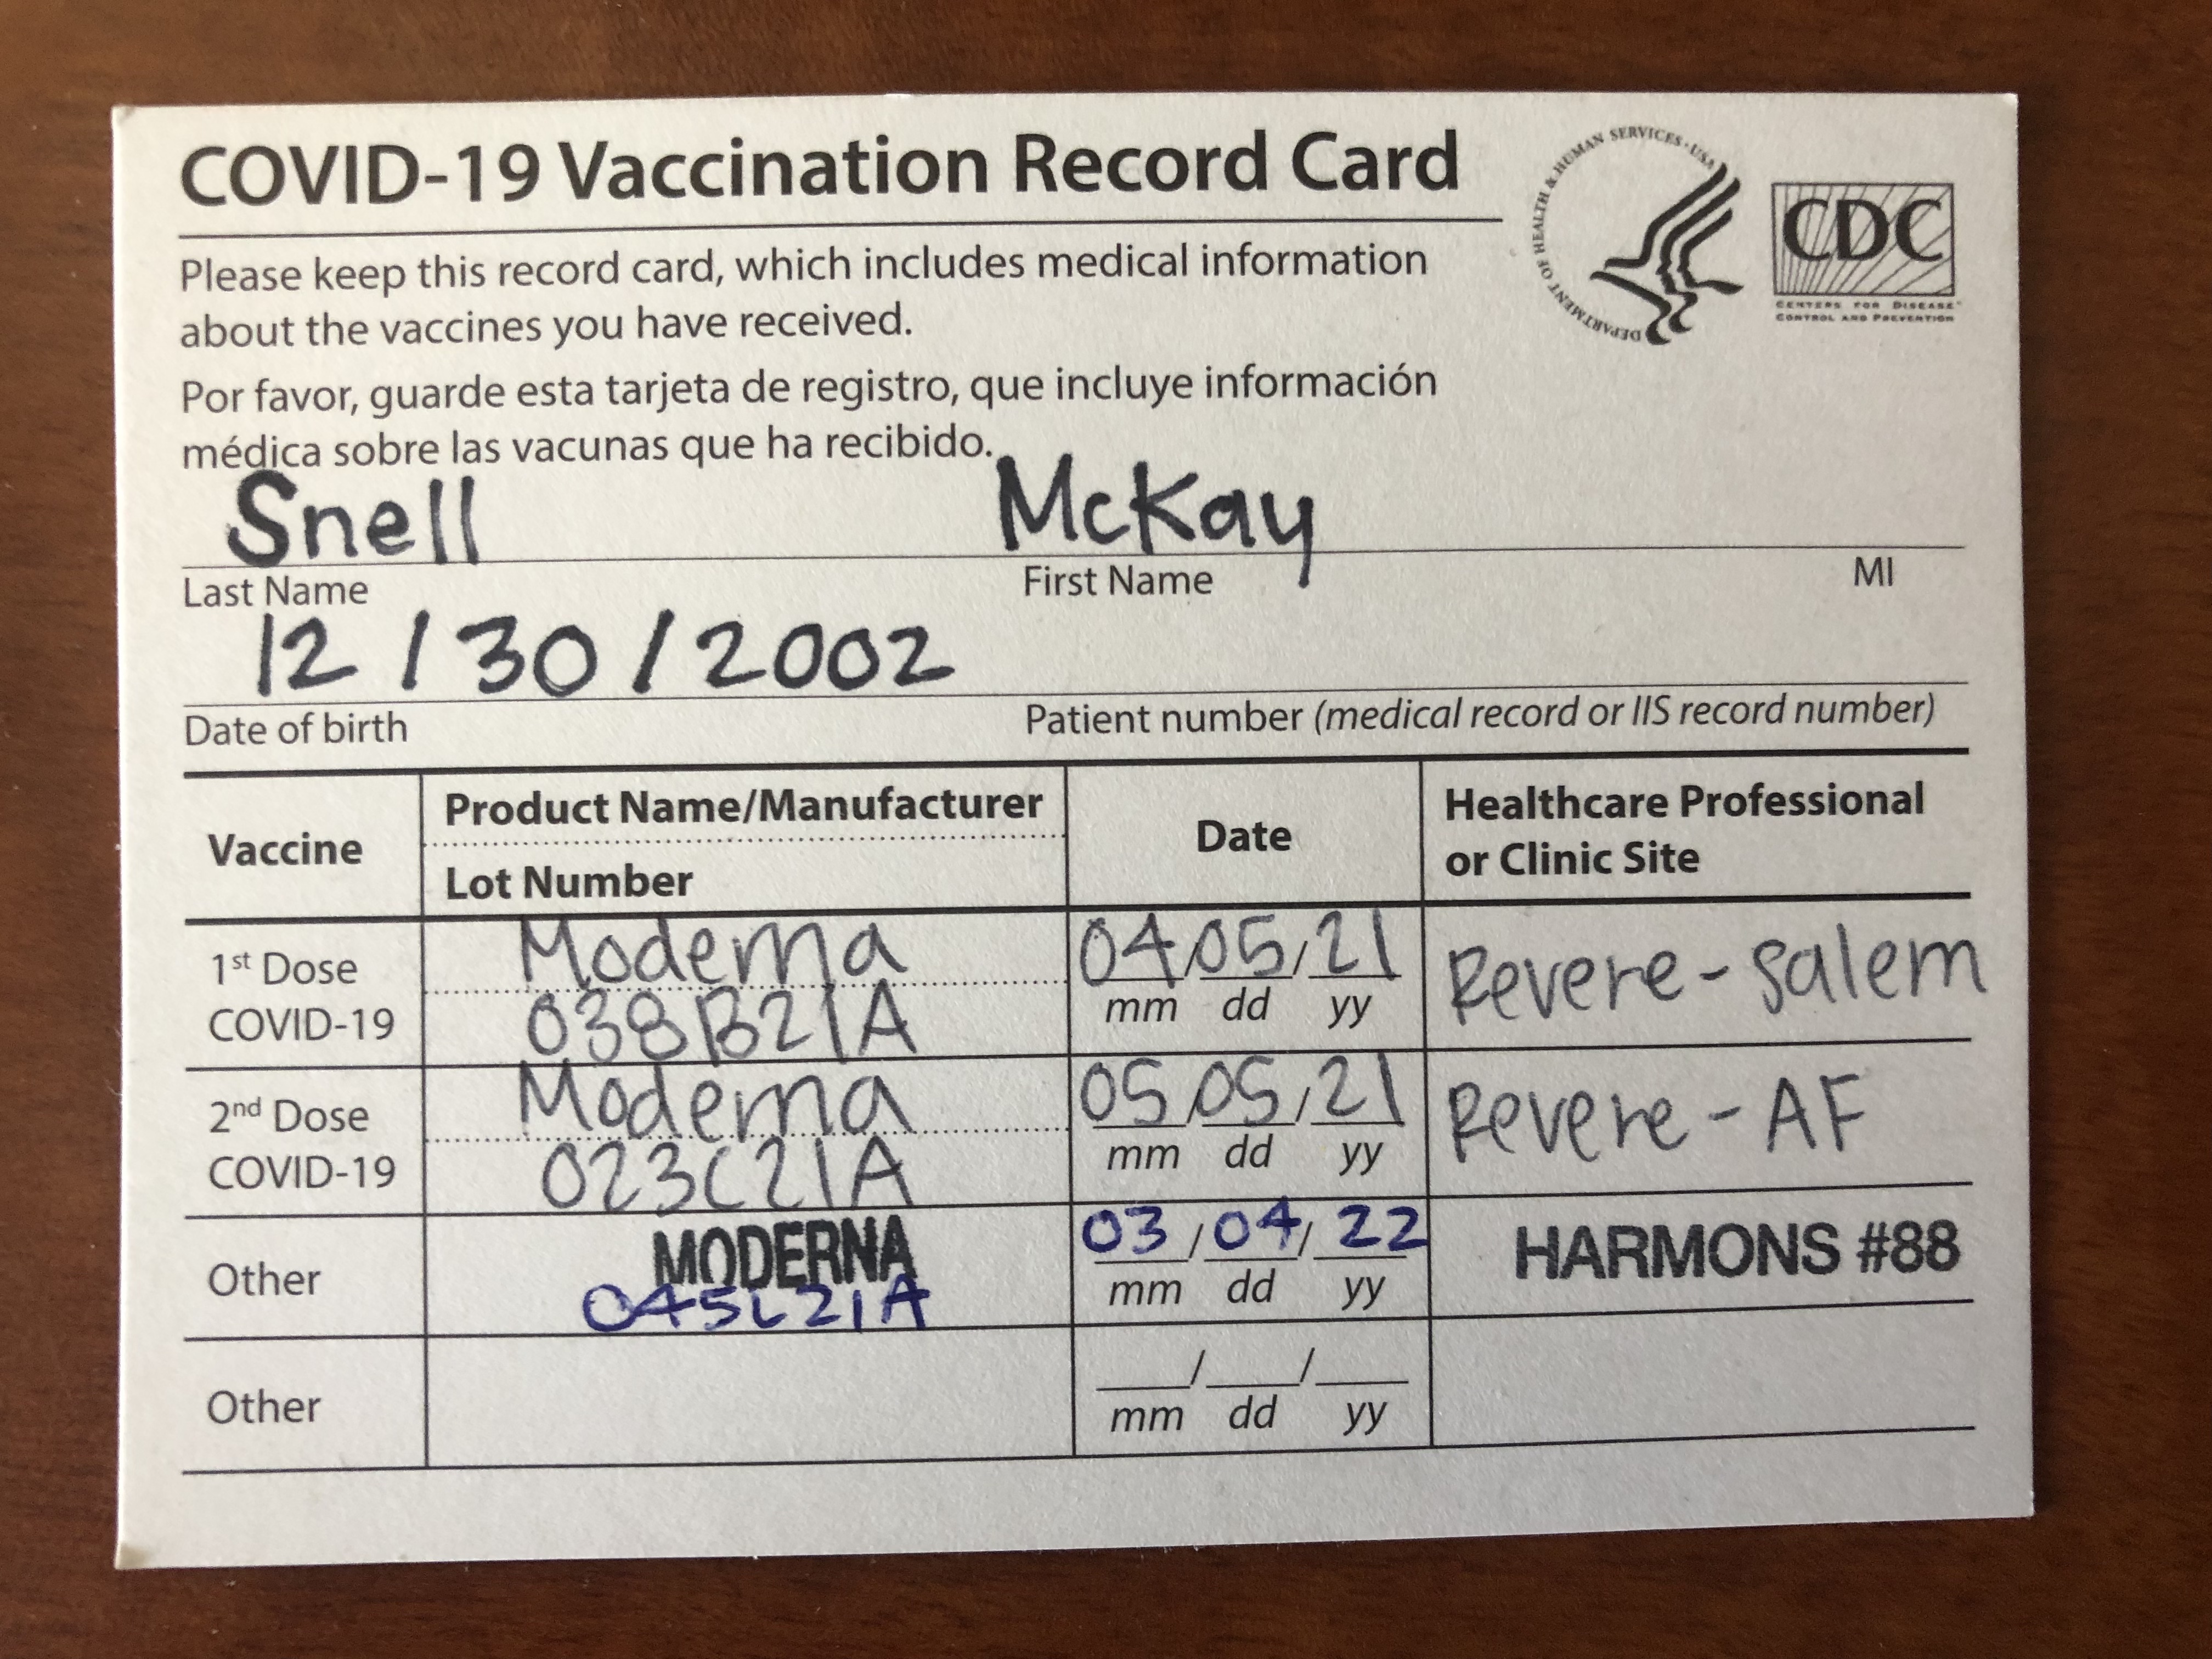 COVID-19 Vaccination Record Card
DEPARTMENT OF HEALTH & HUMAN SERVICES · USA
CDC
CENTERS FOR DISEASE
CONTROL AND PREVENTION
Please keep this record card, which includes medical information
about the vaccines you have received.
Por favor, guarde esta tarjeta de registro, que incluye información
médica sobre las vacunas que ha recibido.
Snell McKay
Last Name First Name MI
12/30/2002
Date of birth Patient number (medical record or IIS record number)
Vaccine Product Name/Manufacturer Date Healthcare Professional
Lot Number or Clinic Site
1st Dose Moderna 04/05/21 Revere-Salem
COVID-19 038B21A mm dd yy
2nd Dose Moderna 05/05/21 Revere-AF
COVID-19 023C21A mm dd yy
Other MODERNA 03/04/22 HARMONS #88
mm dd yy
Other ___/___/___
mm dd yy